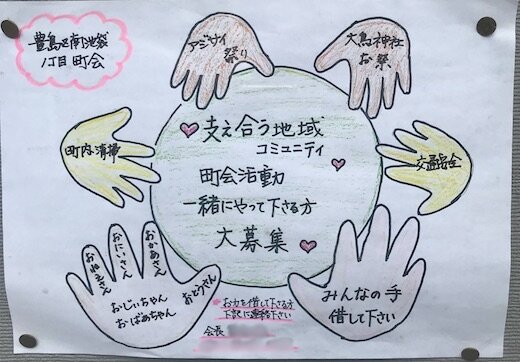 豊島区南池袋
1丁目町会
アジサイ
祭り
大鳥神社
お祭
町内清掃
交通安全
支え合う地域
コミュニティ
町会活動
一緒にやって下さる方
大募集
おねえさん
おにいさん
おかあさん
おとうさん
おじいちゃん
おばあちゃん
みんなの手
借して下さい
お力を借して下さる方
下記に連絡下さい
会長